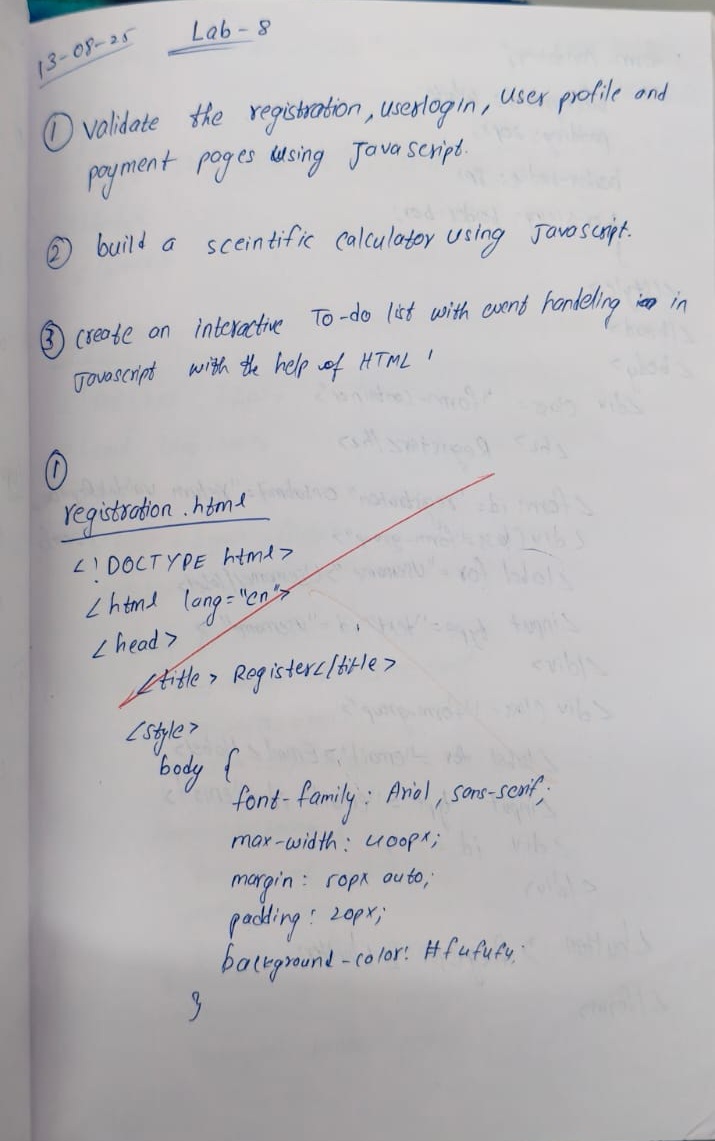 13-08-25
Lab - 8
① validate the registration, userlogin, user profile and
payment pages using Javascript.
② build a sceintific calculator using Javascript.
③ create an interactive To-do list with event handeling in
Javascript with the help of HTML '
①
registration.html
<!DOCTYPE html>
<html lang="en">
<head>
<title> Register</title>
<style>
body {
font-family: Arial, sans-serif;
max-width: 400px;
margin: 50px auto;
padding: 20px;
background-color: #f4f4f4;
}